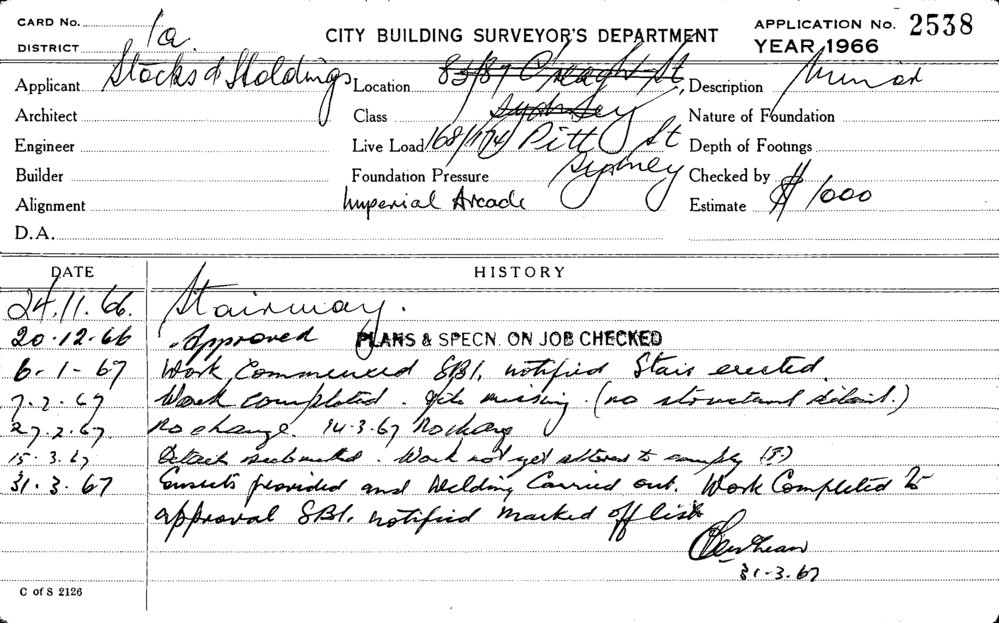 CARD No.
DISTRICT 1a.
CITY BUILDING SURVEYOR'S DEPARTMENT
APPLICATION No. 2538
YEAR 1966
Applicant Stocks & Holdings Location 83/89 St, Description Minor
Architect Class Sydney Nature of Foundation
Engineer Live Load 168/174 Pitt St Depth of Footings
Builder Foundation Pressure Sydney Checked by
Alignment Imperial Arcade Estimate $1000
D.A.
DATE HISTORY
24.11.66. Stairway.
20.12.66 Approved PLANS & SPECN. ON JOB CHECKED
6-1-67 Work Commenced SBI. notified Stair erected.
7.2.67 Work completed. missing. (no structural .)
27.2.67. No change. 14.3.67 No change
15.3.67 Details submitted. Work not yet altered to comply
31.3.67 provided and Welding Carried out. Work Completed to
approval SBI. notified marked off list
31-3.67
C of S 2126